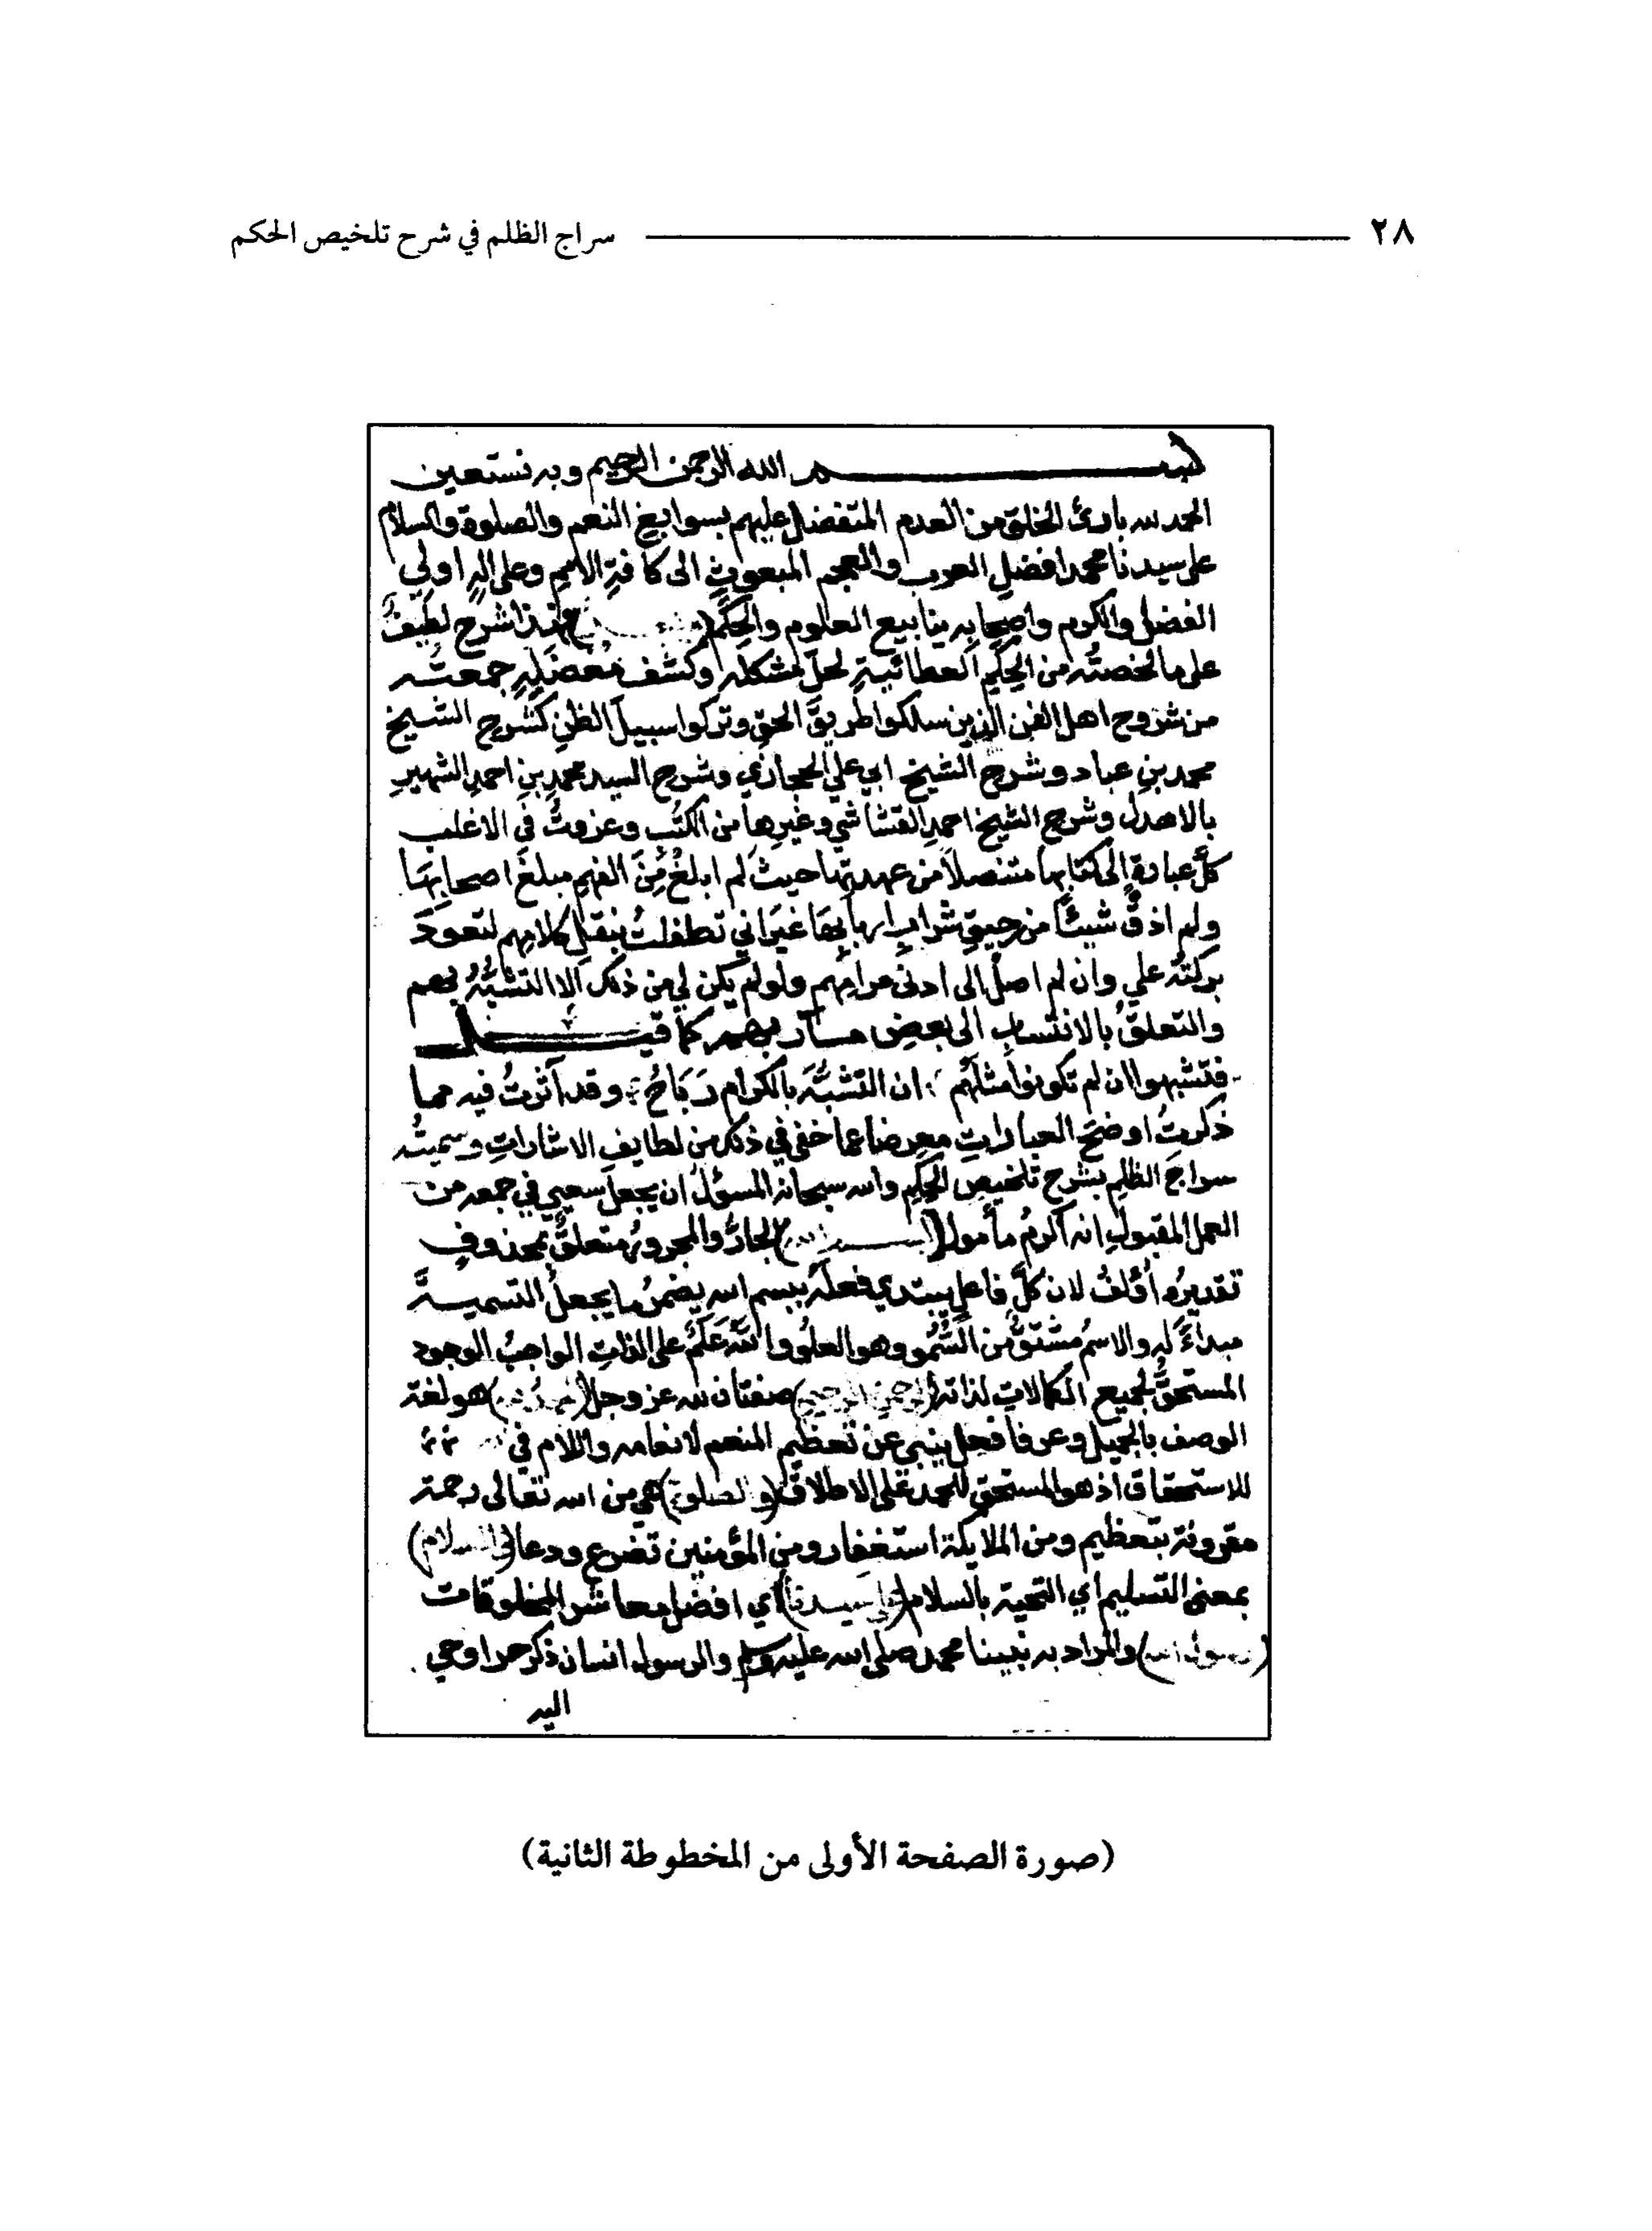 ٢٨ سراج الظلم في شرح تلخيص الحكم
بسم الله الرحمن الرحيم وبه نستعين
الحمد لله بارئ الخلق من العدم المتفضل عليهم بسوابغ النعم والصلوة والسلام
على سيدنا محمد افضل العرب والعجم المبعوث الى كافة الامم وعلى اله اولي
الفضل والكرم واصحابه ينابيع العلوم والحكم ( ) فهذا شرح لطيف
على ما لخصته من الحكم العطائية لحل مشكله وكشف معضله جمعته
من شروح اهل الفن الذين سلكوا طريق الحق وتركوا سبيل الظن كشرح الشيخ
محمد بن عباد وشرح الشيخ ابي علي الحجازي وشرح السيد محمد بن احمد الشهير
بالاهدل وشرح الشيخ احمد القشاشي وغيرها من الكتب وعزوت في الاغلب
كل عبارة الى كتابها متنصلا من عهدتها حيث لم ابلغ من الفهم مبلغ اصحابها
ولم اذق شيئا من رحيق شراب اربابها غير اني تطفلت بنقل كلامهم لتعود
بركته علي وان لم اصل الى ادنى مرامهم ولو لم يكن لي من ذلك الا التشبه بهم
والتعلق بالانتساب الى بعض مآربهم كما قيل
فتشبهوا ان لم تكونوا مثلهم ؛ ان التشبه بالكرام رباح ؛ وقد آثرت فيه مما
ذكرت اوضح العبارات معرضا عما خفي في ذلك من لطايف الاشارات وسميته
سراج الظلم بشرح تلخيص الحكم والله سبحانه المسؤل ان يجعل سعيي في جمعه من
العمل المقبول انه اكرم مأمول (بسم الله) الجار والمجرور متعلق بمحذوف
تقديره أؤلف لان كل فاعل يبتدي فعله ببسم الله يضمر ما يجعل التسمية
مبداء له والاسم مشتق من السمو وهو العلو والله علم على الذات الواجب الوجود
المستحق لجميع الكمالات لذاته (الرحمن الرحيم) صفتان لله عز وجل (الحمد لله) هو لغة
الوصف بالجميل وعرفا فعل ينبي عن تعظيم المنعم لانعامه واللام في لله
للاستحقاق اذ هو المستحق للحمد على الاطلاق (والصلوة) هي من الله تعالى رحمة
مقرونة بتعظيم ومن الملايكة استغفار ومن المؤمنين تضرع ودعا (والسلام)
بمعنى التسليم اي التحية بالسلام (على سيدنا) اي افضل معاشر المخلوقات
(رسول الله) والمراد به نبينا محمد صلى الله عليه وسلم والرسول انسان ذكر حر اوحي
اليه
(صورة الصفحة الأولى من المخطوطة الثانية)